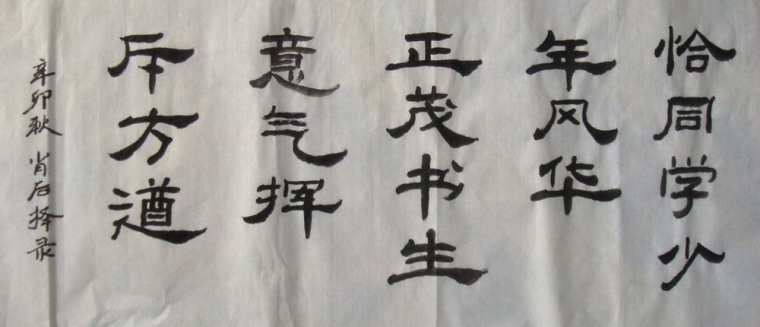 恰同学少
年风华
正茂书生
意气挥
斥方遒
辛卯秋 肖后择录